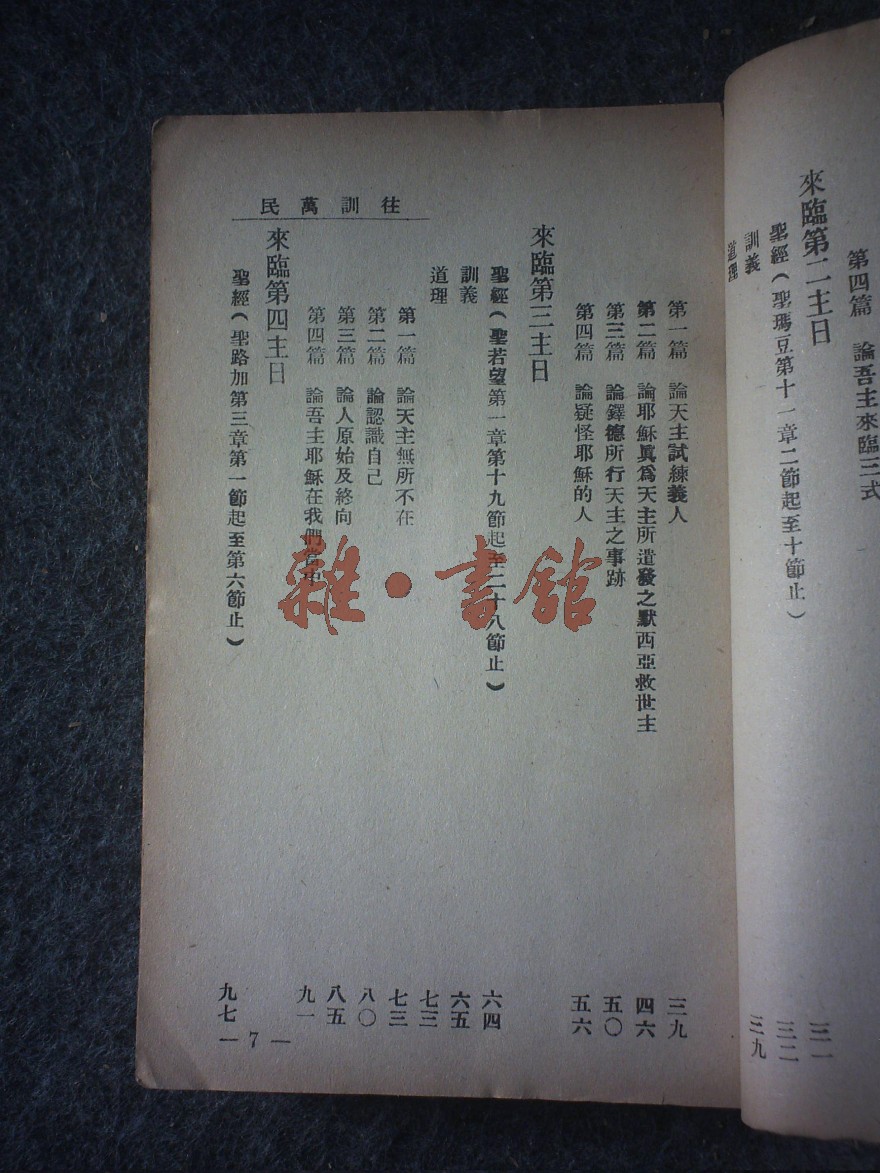 第四篇 論吾主來臨三式
來臨第二主日
聖經(聖瑪豆第十一章二節起至十節止) 三一
訓義 三二
道理 三九
第一篇 論天主試練義人 三九
第二篇 論耶穌眞爲天主所遣發之默西亞救世主 四六
第三篇 論鐸德所行天主之事跡 五〇
第四篇 論疑怪耶穌的人 五六
來臨第三主日
聖經(聖若望第一章第十九節起至二十八節止) 六四
訓義 六五
道理 七三
第一篇 論天主無所不在 七三
第二篇 論認識自己 八〇
第三篇 論人原始及終向 八五
第四篇 論吾主耶穌在我們當中 九一
往訓萬民
來臨第四主日
聖經(聖路加第三章第一節起至第六節止) 九七
— 7 —
雜·書館